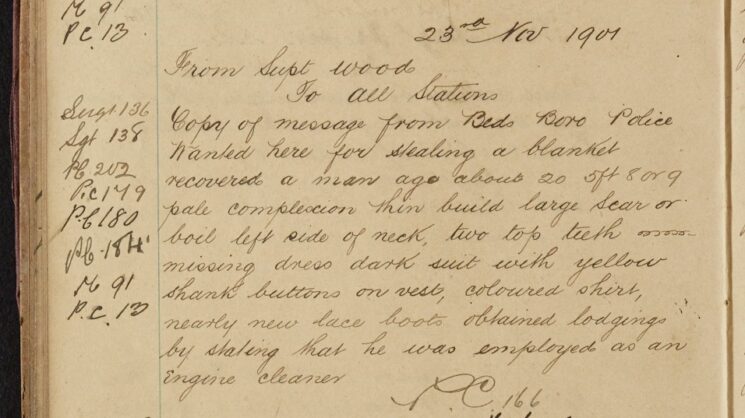 M 91
P.C. 13
23rd Nov 1901
From Supt Wood
To all Stations
Sergt 136
Sgt 138
PC 202
P.C 179
P.C 180
PC 184
M 91
P.C. 13
Copy of message from Beds Boro Police
Wanted here for stealing a blanket
recovered a man age about 20 5ft 8 or 9
pale complexion thin build large Scar or
boil left side of neck, two top teeth
missing dress dark suit with yellow
shank buttons on vest, coloured shirt,
nearly new lace boots obtained lodgings
by stating that he was employed as an
Engine cleaner
PC 166